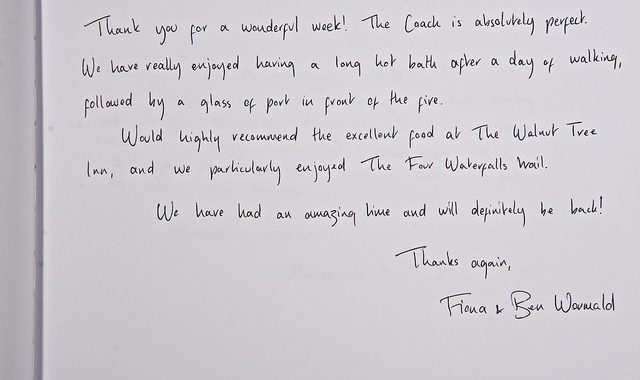 Thank you for a wonderful week! The Coach is absolutely perfect.
We have really enjoyed having a long hot bath after a day of walking,
followed by a glass of port in front of the fire.
Would highly recommend the excellent food at The Walnut Tree
Inn, and we particularly enjoyed The Four Waterfalls Trail.
We have had an amazing time and will definitely be back!
Thanks again,
Fiona & Ben Wormald